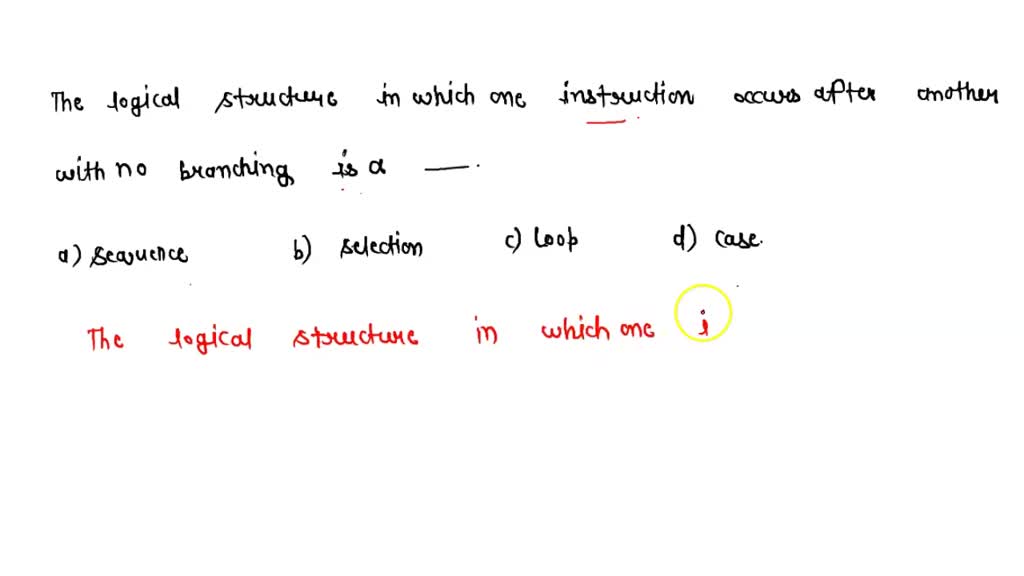 The logical structure in which one instruction occurs after another
with no branching is a —.
a) sequence b) selection c) loop d) case.
The logical structure in which one i